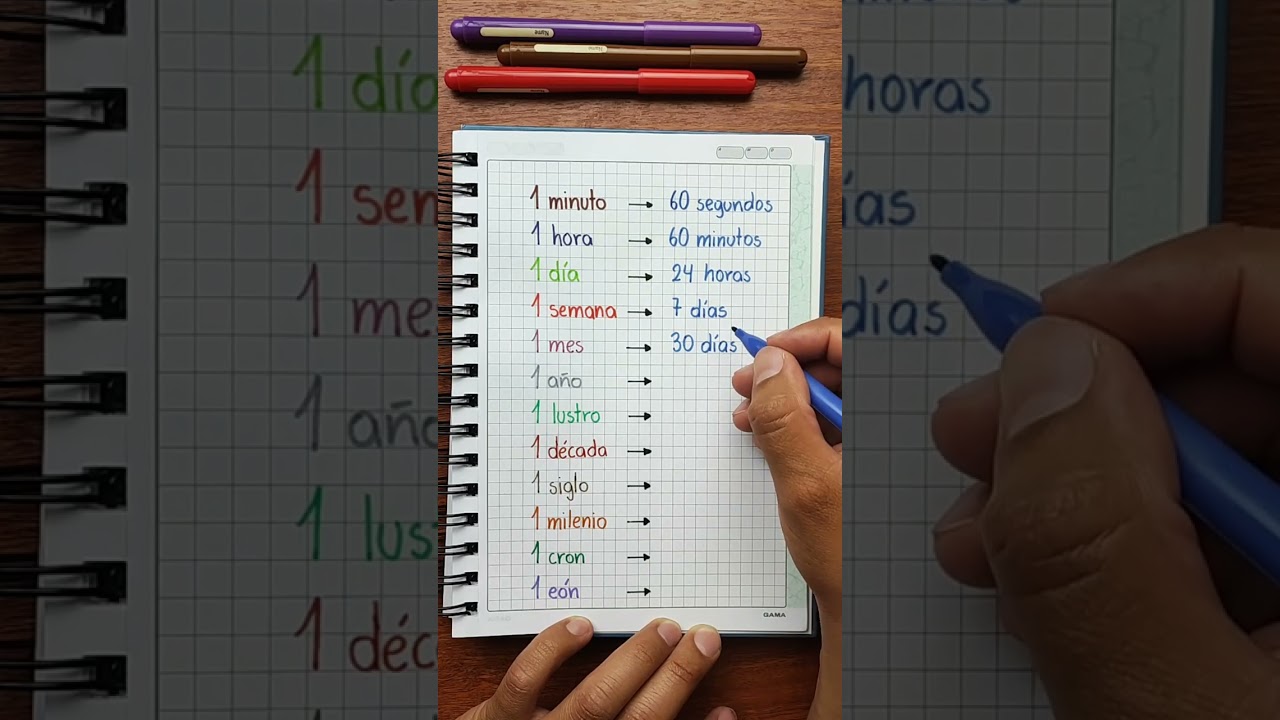 1 minuto → 60 segundos
1 hora → 60 minutos
1 día → 24 horas
1 semana → 7 días
1 mes → 30 días
1 año →
1 lustro →
1 década →
1 siglo →
1 milenio →
1 cron →
1 eón →
GAMA